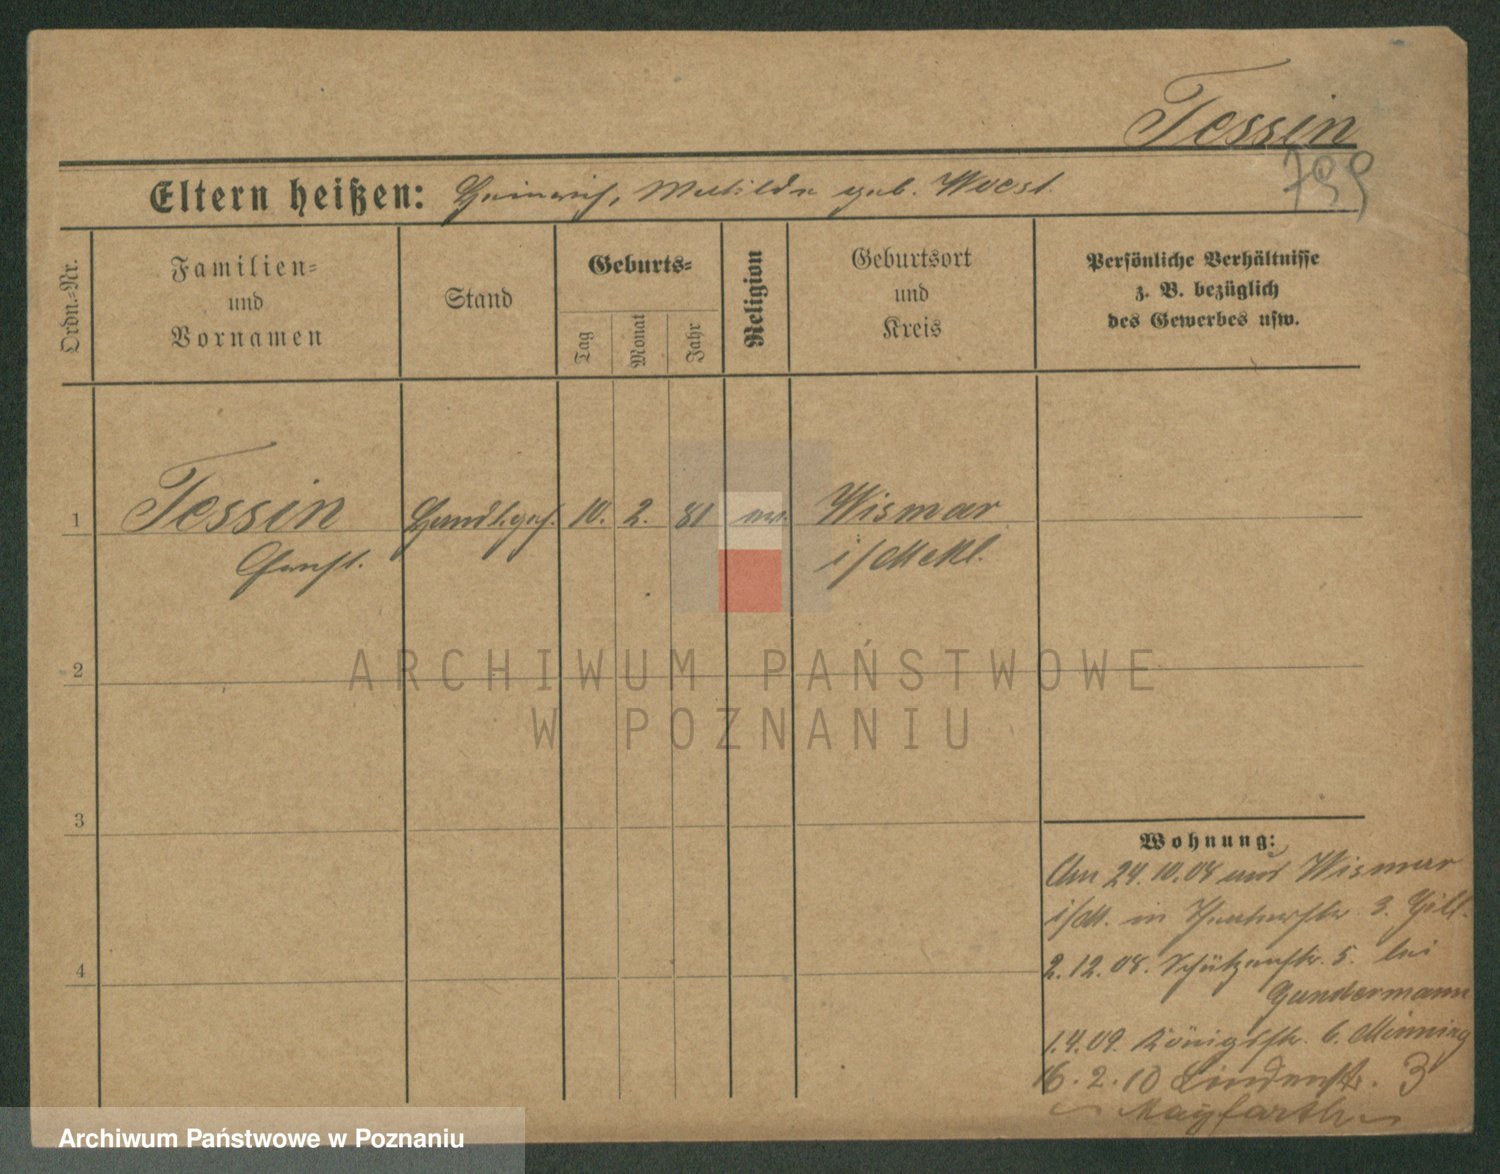 Tessin
Eltern heißen: Heinrich, Mathilde geb. Woest.
Ordn.=Nr.
Familien=
und
Vornamen
Stand
Geburts=
Tag
Monat
Jahr
Religion
Geburtsort
und
Kreis
Persönliche Verhältnisse
z. B. bezüglich
des Gewerbes usw.
1 Tessin Handl.geh. 10. 2. 81 ev. Wismar
Ernst. i/Meckl.
2
3
4
Wohnung:
Am 24.10.08 aus Wismar
i/M. in Theaterstr. 3.
2.12.08. Schützenstr. 5. bei
Gundermann
1.4.09. Königstr. 6. Minning
16.2.10 Lindenstr. 3
Mayfarth
ARCHIWUM PAŃSTWOWE
W POZNANIU
Archiwum Państwowe w Poznaniu